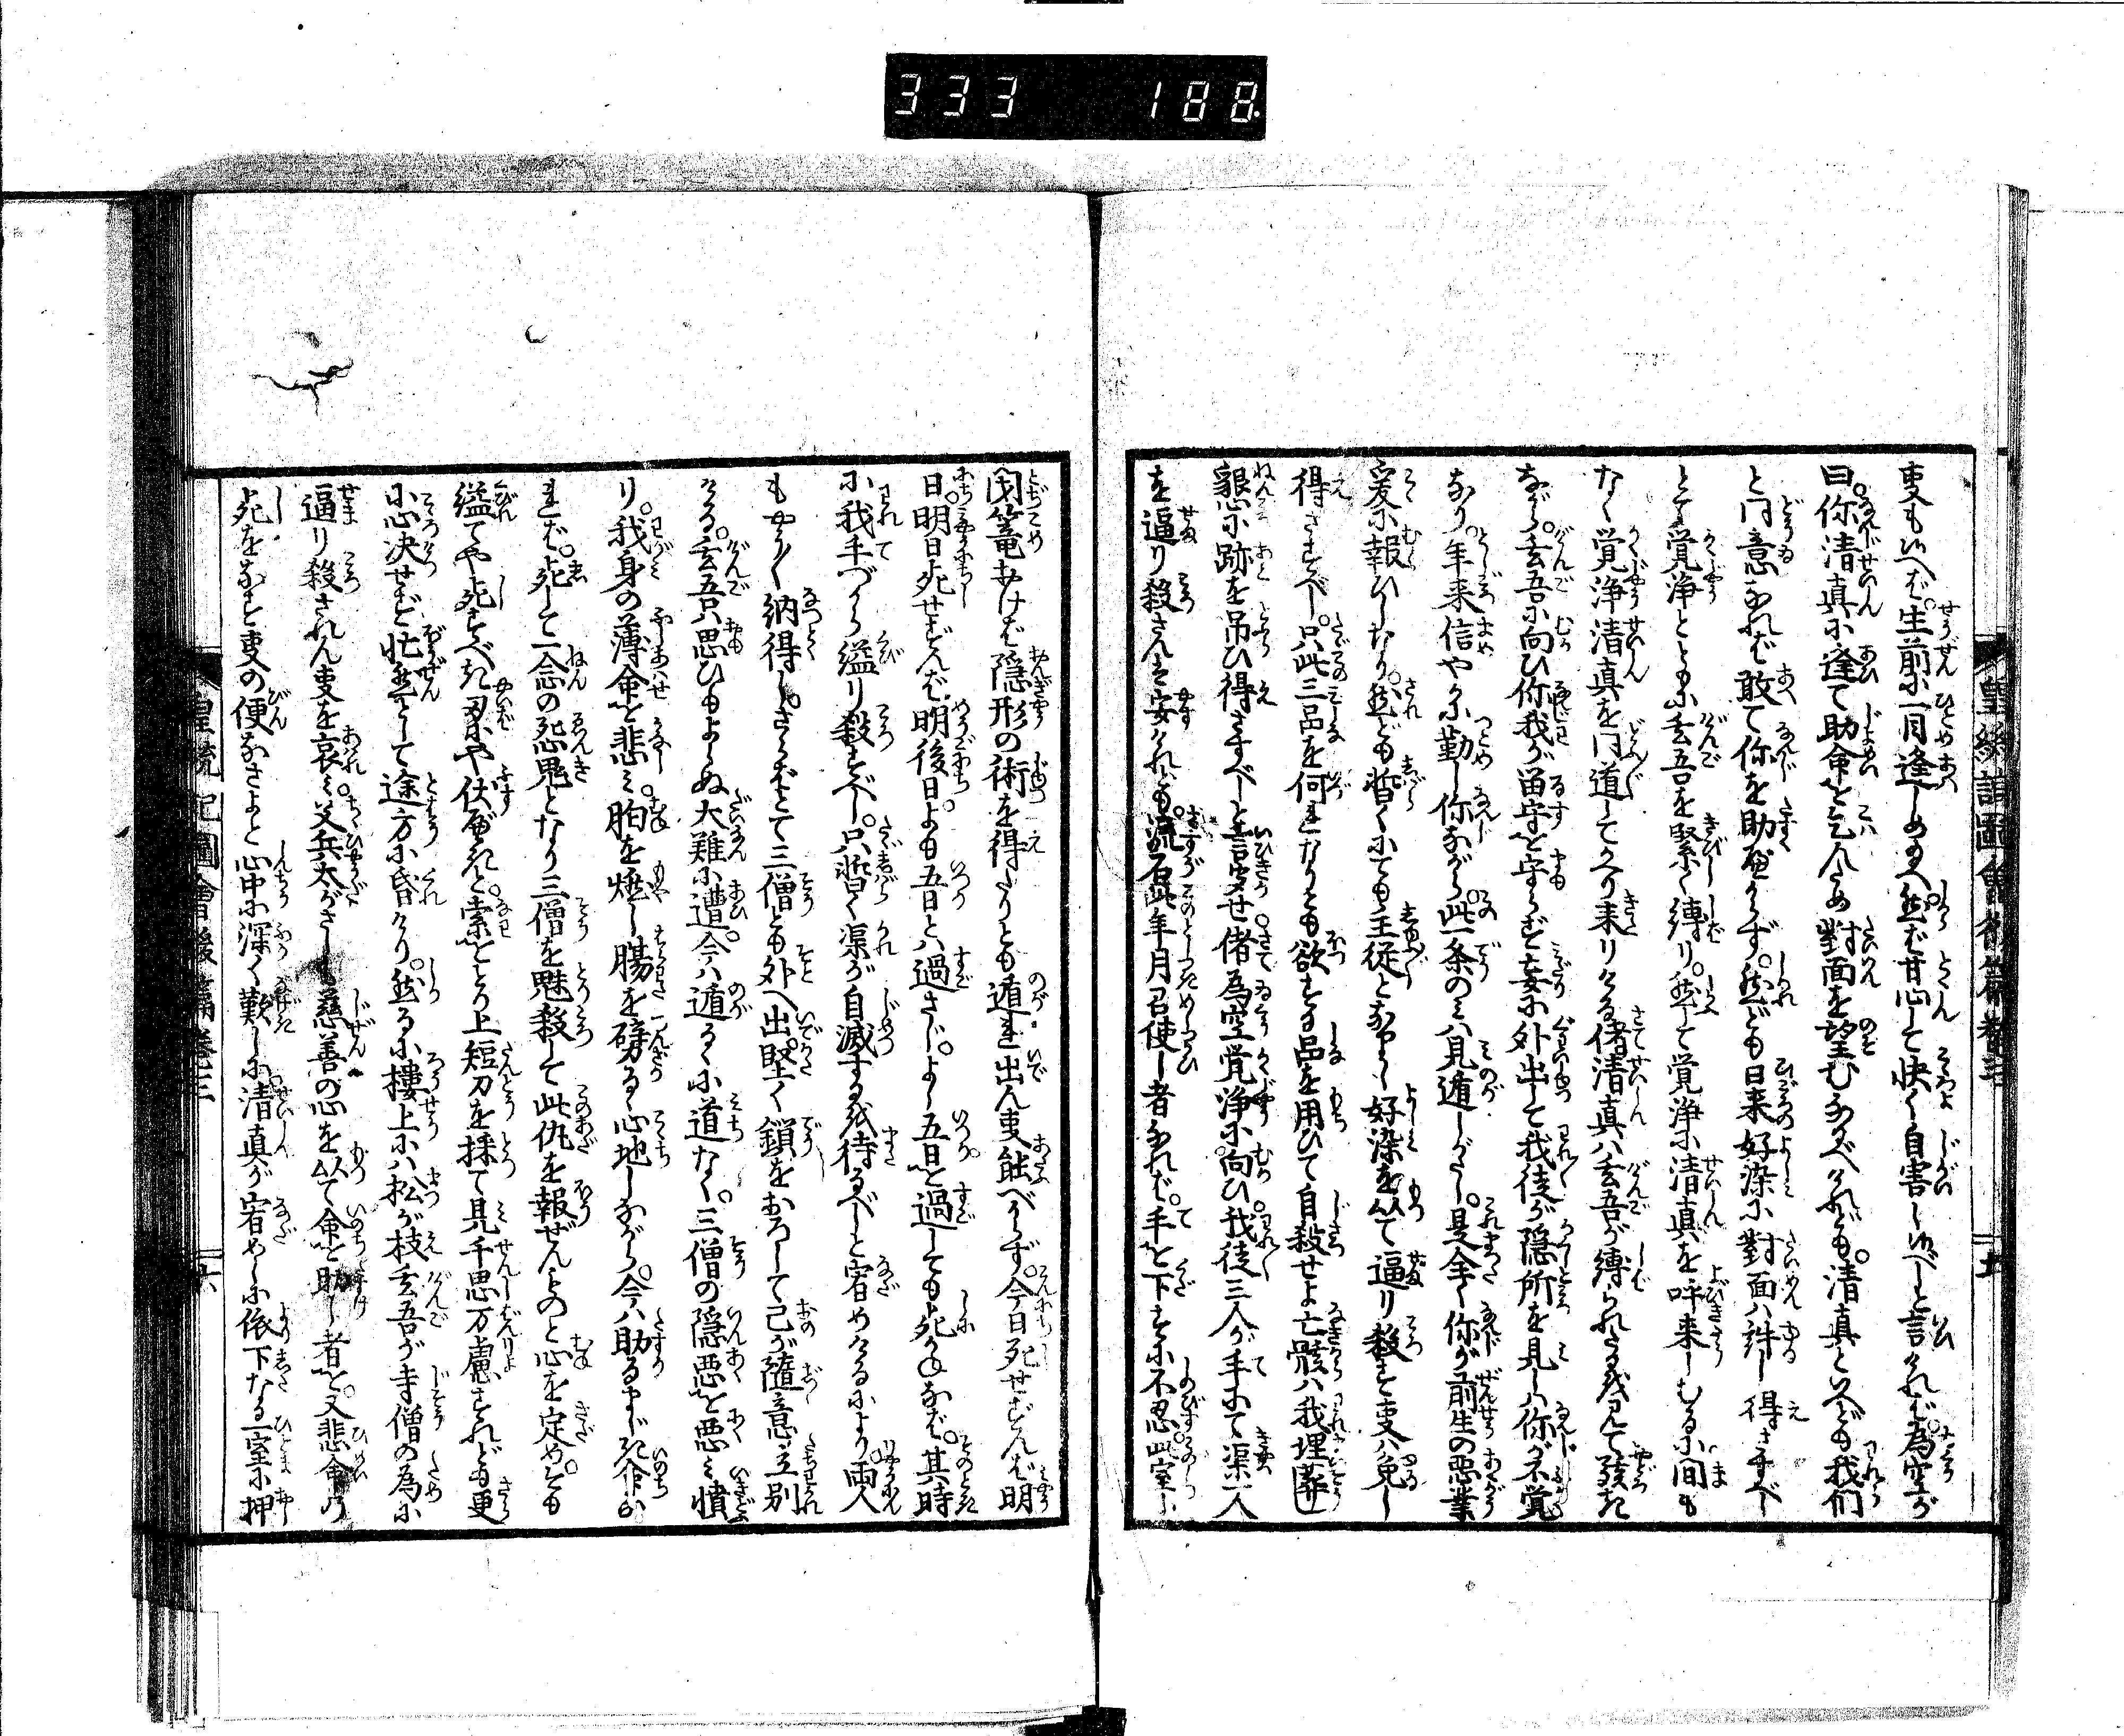 333 188
叓もいへば生前に一目逢しめ玉へ然ば甘心して快く自害し候べしと言ければ為空が
曰你清真に逢て助命を乞んため対面を望むなるべけれども清真といへども我們
と同意なれば敢て你を助べからず然ども日来好染に対面ハ許し得さすべし
とて覚浄とともに玄吾を緊く縛り然して覚浄に清真を呼来しむるに間も
なく覚浄清真を同道してかへり来りける偖清真ハ玄吾が縛られたる我見て駭き
ながら玄吾に向ひ你我が留守を守らず妄に外出して我徒が隠所を見しハ你が不覚
なり年来信やかに勤し你ながら此一条のミハ見遁しがたし是全く你が前生の悪業
爰に報ひしなり然ども暫くにても主従となりし好染を以て逼り殺す叓ハ免し
得さすべし只此三品を何れなりとも欲する品を用ひて自殺せよ亡骸ハ我埋葬し
懇に跡を吊ひ得さすべしと言聞せ偖為空覚浄に向ひ我徒三人が手にて渠一人
を逼り殺さんは安けれども流石此年月召使し者なれば手を下すに不忍此室に
閉篭おけば隠形の術を得たりとも遁れ出ん叓能べからず今日死せずんば明
日明日死せずんば明後日よも五日とハ過さじよし五日を過しても死かねなば其時
に我手づから縊り殺すべし只暫く渠が自滅する我待るべしと宥めけるにより両人
もやうやく納得しさらばとて三僧とも外へ出堅く鎖をおろして己が随意立別
ける玄吾只思ひもよらぬ大難に遭今ハ遁るゝに道なく三僧の隠悪を悪ミ憤
り我身の薄命を悲ミ胸を燃し腸を劈る心地しながら今ハ助るまじき命な
れば死して一念の怨鬼となり三僧を魅殺して此仇を報ぜんものと心を定めども
縊てや死すべき刃にや伏べきと索をとり上短刀を採て見千思万慮すれども更
に心決せず忙然として途方に昏けり然るに楼上にハ松が枝玄吾が寺僧の為に
逼り殺されん叓を哀ミ父兵太がさしも慈善の心を以て命を助し者を又悲命の
死をなす叓の便なさよと心中に深く歎しに清真が宥めしに依下なる一室に押